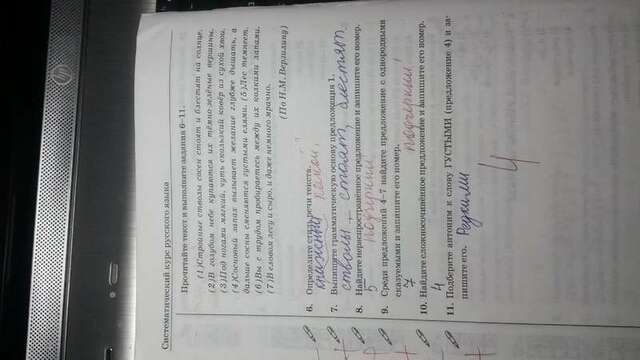 Систематический курс русского языка
Прочитайте текст и выполните задания 6–11.
(1)Стройные стволы сосен стоят и блестят на солнце.
(2)В голубом небе купаются их тёмно-зелёные вершины.
(3)Под ногами мягкий, чуть скользкий ковёр из сухой хвои.
(4)Сосновый запах вызывает желание глубже дышать, а
дальше сосны сменяются густыми елями. (5)Лес темнеет.
(6)Вы с трудом пробираетесь между их колкими лапами.
(7)В еловом лесу и сыро, и даже немного мрачно.
(По Н.М. Верзилину)
6. Определите стиль речи текста.
7. Выпишите грамматическую основу предложения 1.
стволы – стоят, блестят
8. Найдите нераспространённое предложение и запишите его номер.
5 подчеркни
9. Среди предложений 4–7 найдите предложение с однородными
сказуемыми и запишите его номер.
7 подчеркни!
10. Найдите сложносочинённое предложение и запишите его номер.
4
11. Подберите антоним к слову ГУСТЫМИ (предложение 4) и за-
пишите его. Редкими
4
hp